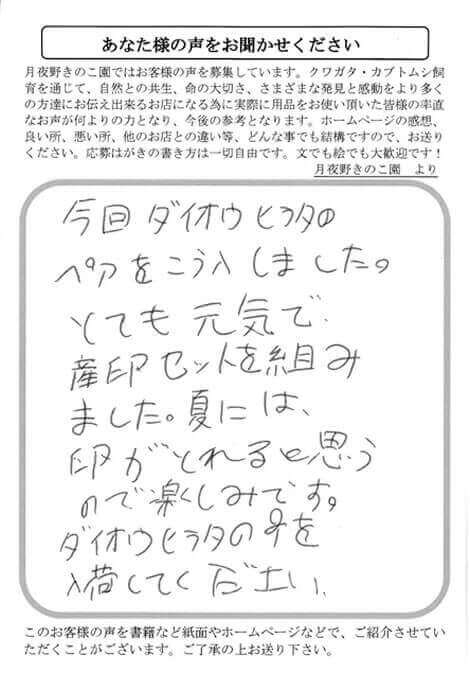 あなた様の声をお聞かせください
月夜野きのこ園ではお客様の声を募集しています。クワガタ・カブトムシ飼
育を通じて、自然との共生、命の大切さ、さまざまな発見と感動をより多く
の方達にお伝え出来るお店になる為に実際に用品をお使い頂いた皆様の率直
なお声が何よりの力となり、今後の参考となります。ホームページの感想、
良い所、悪い所、他のお店との違い等、どんな事でも結構ですので、お送り
ください。応募はがきの書き方は一切自由です。文でも絵でも大歓迎です！
月夜野きのこ園　より
今回ダイオウヒラタの
ペアをこう入しました。
とても元気で、
産印セットを組み
ました。夏には、
印がとれると思う
ので楽しみです。
ダイオウヒラタの♀を
入荷してください。
このお客様の声を書籍など紙面やホームページなどで、ご紹介させてい
ただくことがございます。ご了承の上お送り下さい。